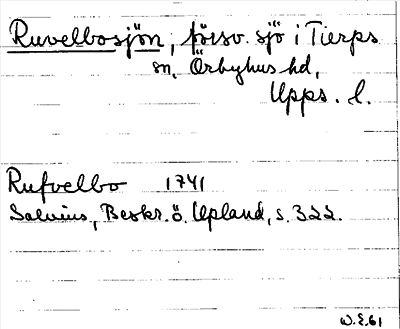 Ruvelbosjön, försv. sjö i Tierps
sn, Örbyhus hd,
Upps. l.
Rufvelbo 1741
Salvius, Beskr. ö. Upland, s. 322.
W.E.61